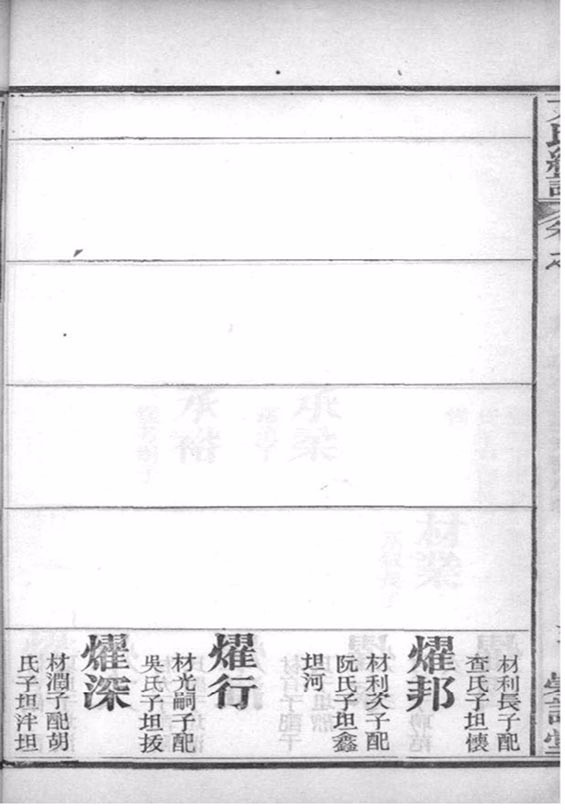 材利長子配
查氏子坦懷
燿邦
材利次子配
阮氏子坦鑫
坦河
燿行
材光嗣子配
吳氏子坦拔
燿深
材潤子配胡
氏子坦泮坦